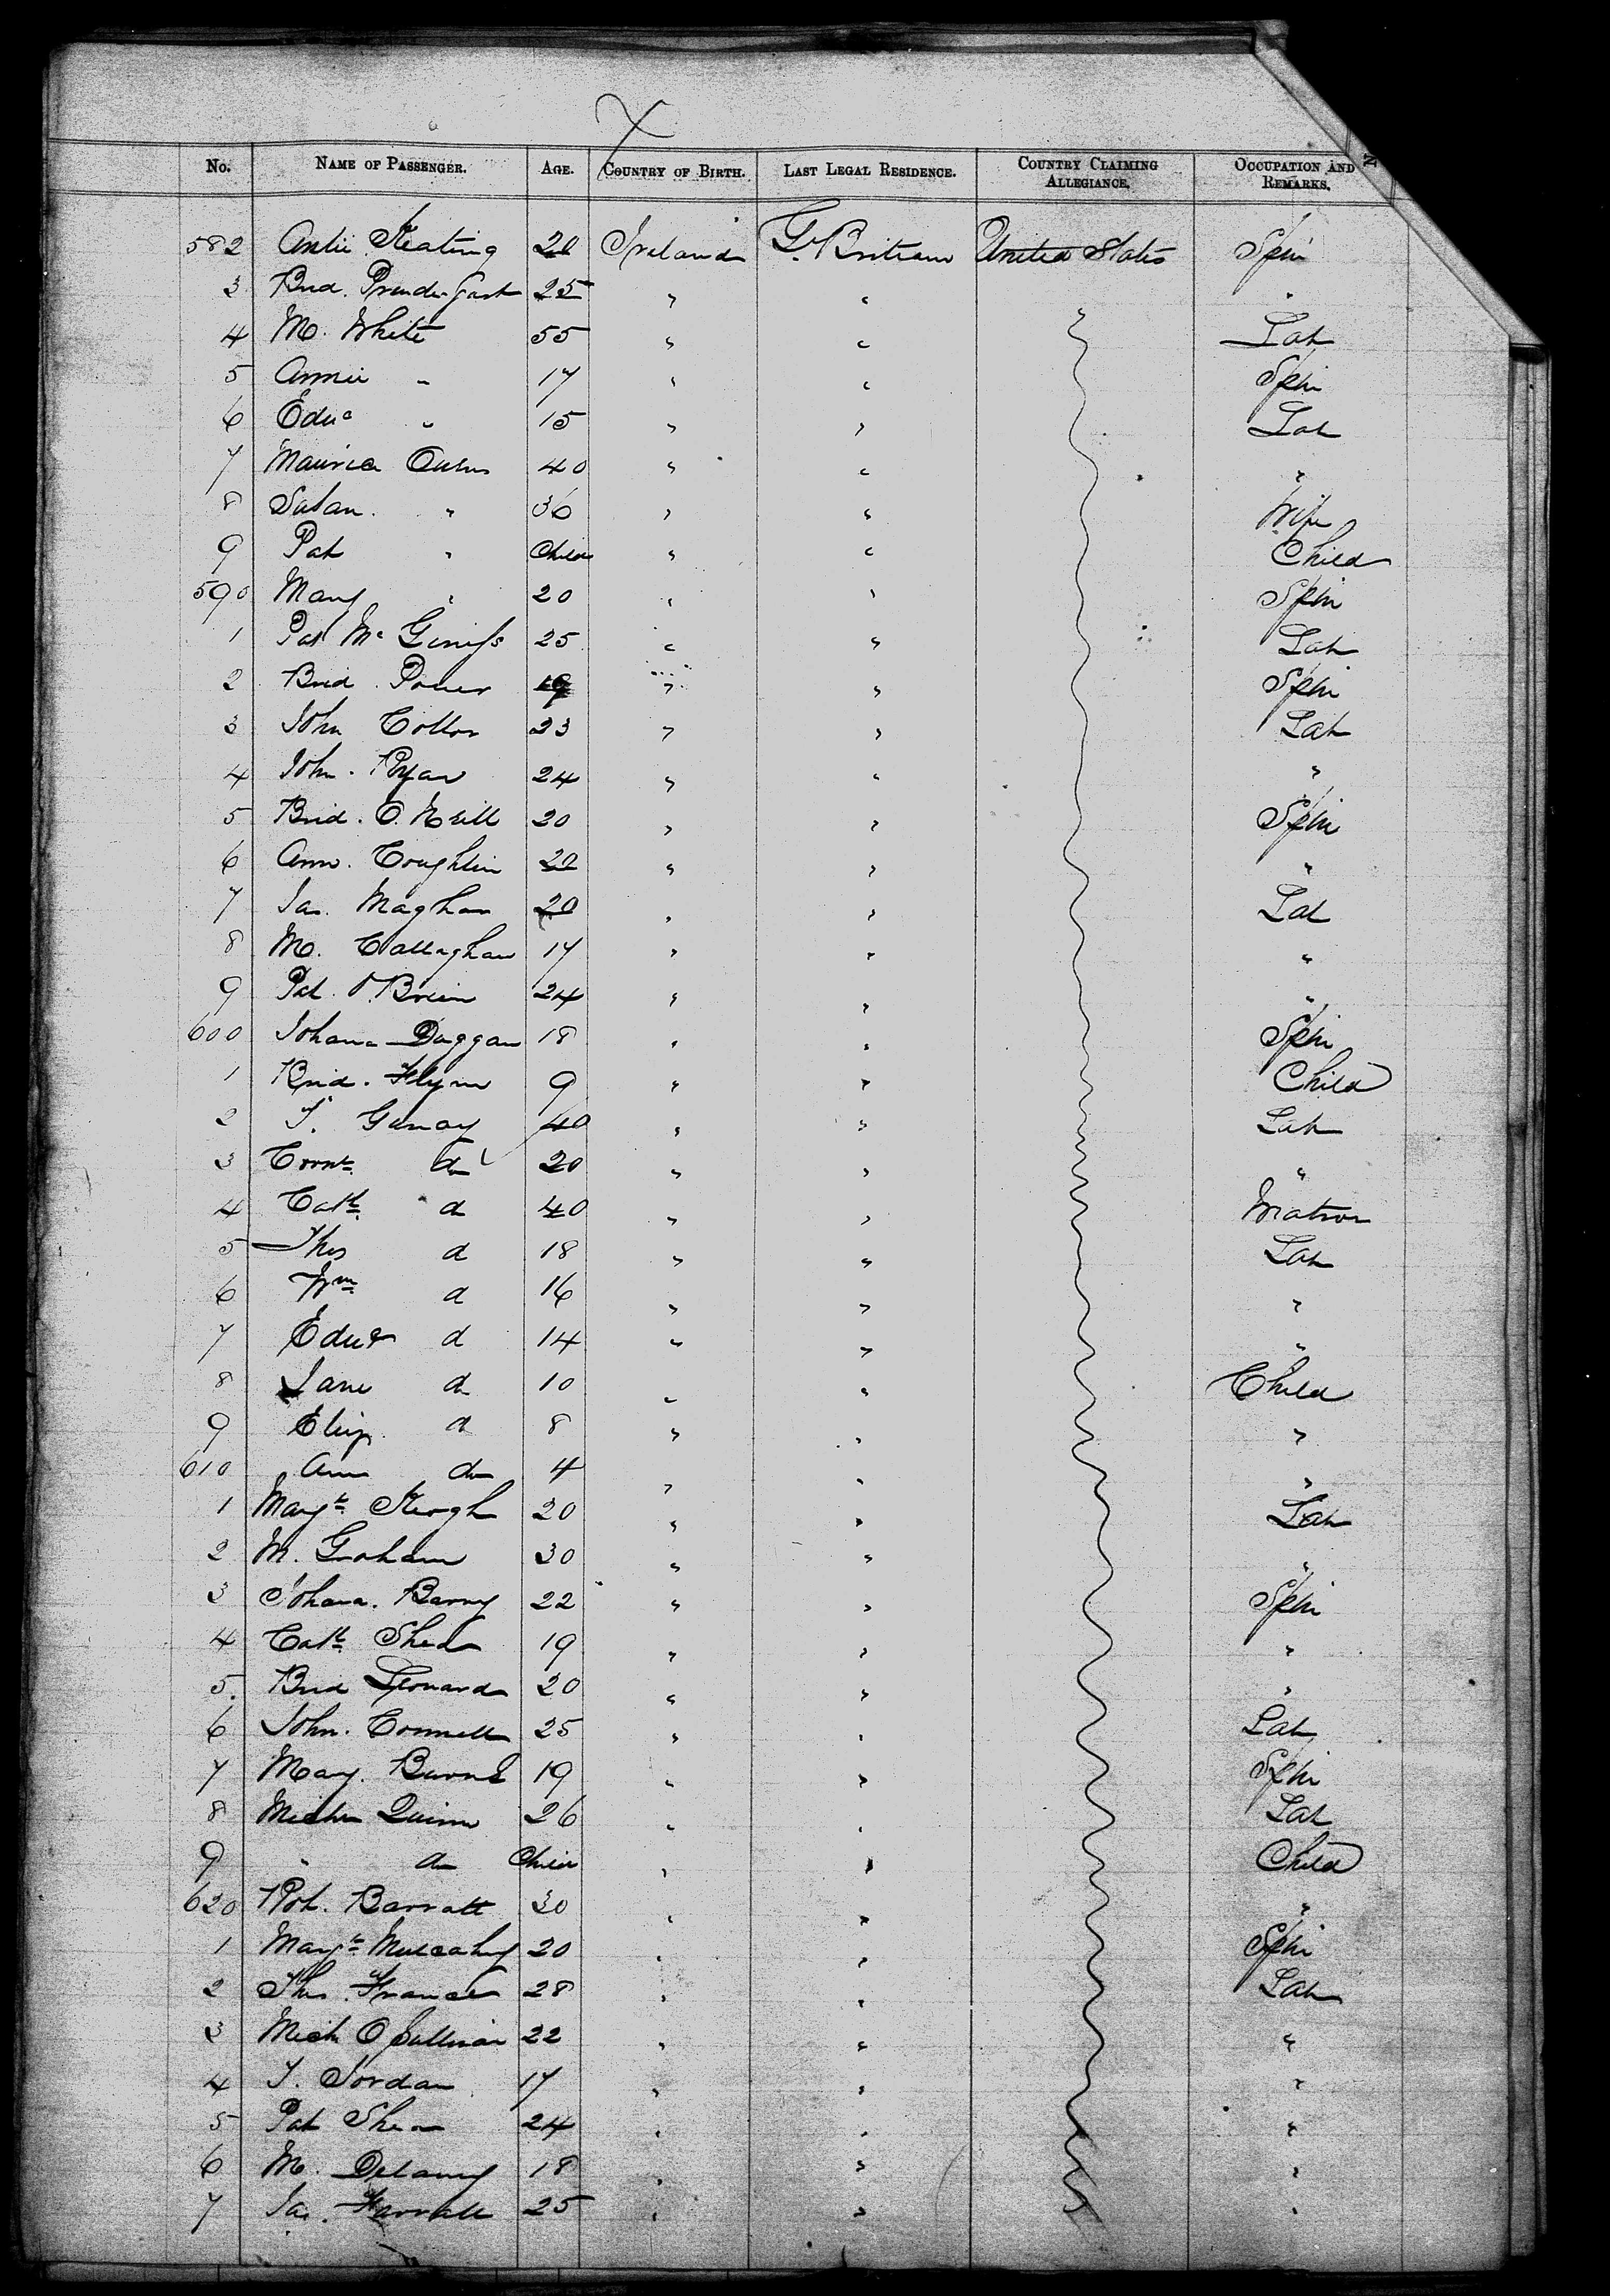 No. NAME OF PASSENGER. AGE. COUNTRY OF BIRTH. LAST LEGAL RESIDENCE. COUNTRY CLAIMING ALLEGIANCE. OCCUPATION AND REMARKS. N
582 Keating 20 Ireland Gt. Britain United States Spin
3 Brid. Prendergast 25 " " "
4 M. White 55 " " Lab
5 Annie " 17 " " Spin
6 Edwd " 15 " " Lab
7 Maurice Owens 40 " " "
8 " 36 " " Wife
9 Pat " Child " " Child
590 Mary " 20 " " Spin
1 Pat McGiniss 25 " " Lab
2 Brid. Power 19 " " Spin
3 John 23 " " Lab
4 John. Ryan 24 " " "
5 Brid. O. Neill 20 " " Spin
6 Ann. Coughlin 20 " " "
7 Jas. Maghan 20 " " Lab
8 M. Callaghan 17 " " "
9 Pat. O'Brien 24 " " "
600 Johana Duggan 18 " " Spin
1 Brid. Flynn 9 " " Child
2 T. 40 " " Lab
3 do 20 " " "
4 Cath. do 40 " " Matron
5 Thos do 18 " " Lab
6 Wm do 16 " " "
7 Edwd do 14 " " "
8 Jane do 10 " " Child
9 Eliz. do 8 " " "
610 Ann do 4 " " "
1 Margt. Keogh 20 " " Lab
2 M. Graham 30 " " "
3 Johana. Barry 22 " " Spin
4 Cath. Shea 19 " " "
5. Brid Leonard 20 " " "
6 John. Connell 25 " " Lab
7 Mary. Burns 19 " " Spin
8 Mich Quinn 26 " " Lab
9 " do Child " " Child
620 Rob. Barratt 30 " " "
1 Margt. Mulcahy 20 " " Spin
2 Thos. 28 " " Lab
3 Mich O Sullivan 22 " " "
4 T. Jordan 17 " " "
5 Pat Shea 24 " " "
6 M. Delaney 18 " " "
7 Jas. Farrall 25 " " "